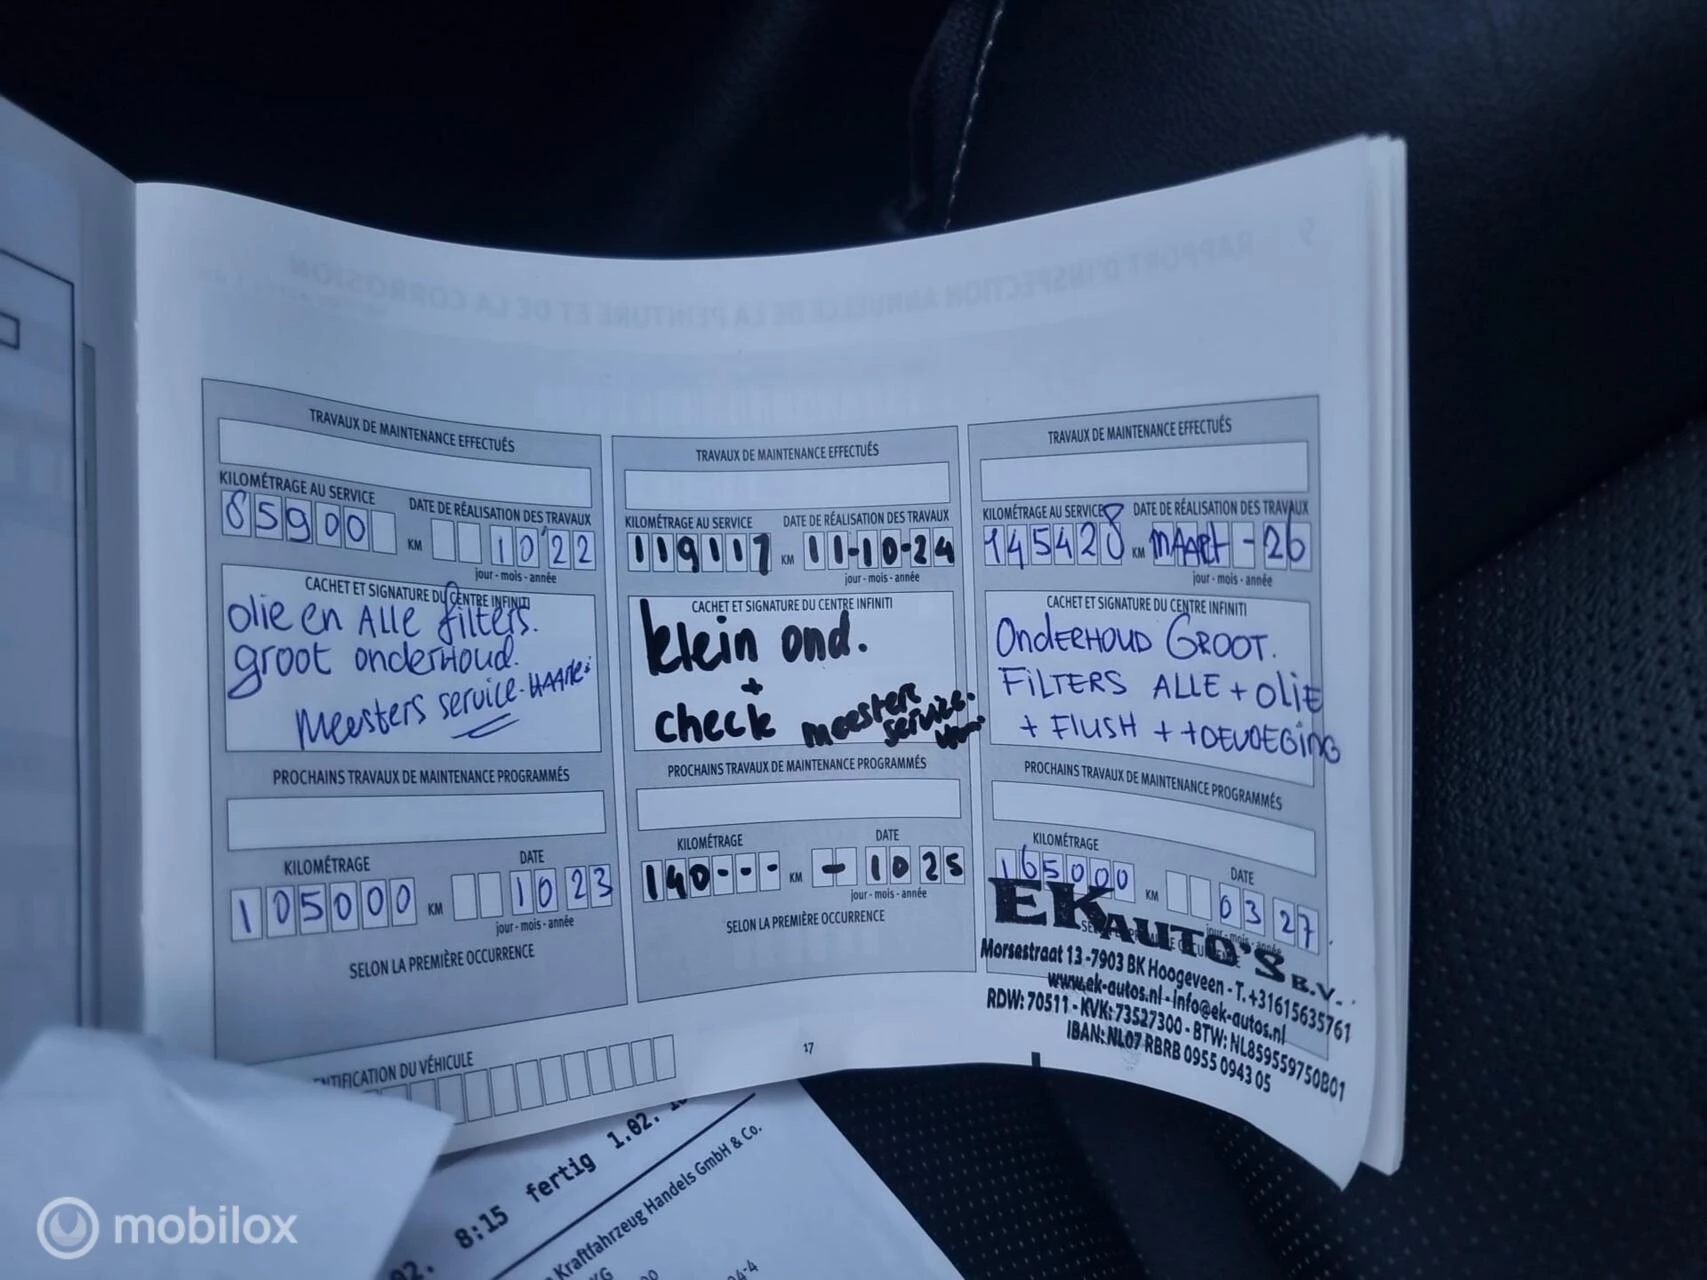 RAPPORT D'INSPECTION ANNUELLE DE LA PEINTURE ET DE LA CORROSION
TRAVAUX DE MAINTENANCE EFFECTUÉS
KILOMÉTRAGE AU SERVICE
DATE DE RÉALISATION DES TRAVAUX
85900 KM 10'22
jour - mois - année
CACHET ET SIGNATURE DU CENTRE INFINITI
olie en ALLE filters.
groot onderhoud.
Meesters service.
PROCHAINS TRAVAUX DE MAINTENANCE PROGRAMMÉS
KILOMÉTRAGE DATE
105000 KM 10 23
jour - mois - année
SELON LA PREMIÈRE OCCURRENCE
TRAVAUX DE MAINTENANCE EFFECTUÉS
KILOMÉTRAGE AU SERVICE DATE DE RÉALISATION DES TRAVAUX
119117 KM 11-10-24
jour - mois - année
CACHET ET SIGNATURE DU CENTRE INFINITI
klein ond.
+
check meesters
service.
PROCHAINS TRAVAUX DE MAINTENANCE PROGRAMMÉS
KILOMÉTRAGE DATE
140--- KM - 10 25
jour - mois - année
SELON LA PREMIÈRE OCCURRENCE
TRAVAUX DE MAINTENANCE EFFECTUÉS
KILOMÉTRAGE AU SERVICE DATE DE RÉALISATION DES TRAVAUX
145428 KM MAART - 26
jour - mois - année
CACHET ET SIGNATURE DU CENTRE INFINITI
ONDERHOUD GROOT.
FILTERS ALLE + OLIE
+ FLUSH + TOEVOEGING
PROCHAINS TRAVAUX DE MAINTENANCE PROGRAMMÉS
KILOMÉTRAGE DATE
165000 KM 03 27
jour - mois - année
EK AUTO'S B.V.
Morsestraat 13 - 7903 BK Hoogeveen - T. +31615635761
www.ek-autos.nl - info@ek-autos.nl
RDW: 70511 - KVK: 73527300 - BTW: NL859559750B01
IBAN: NL07 RBRB 0955 0943 05
DU VÉHICULE
17
8:15 fertig 1.02.
Kraftfahrzeug Handels GmbH & Co.
mobilox